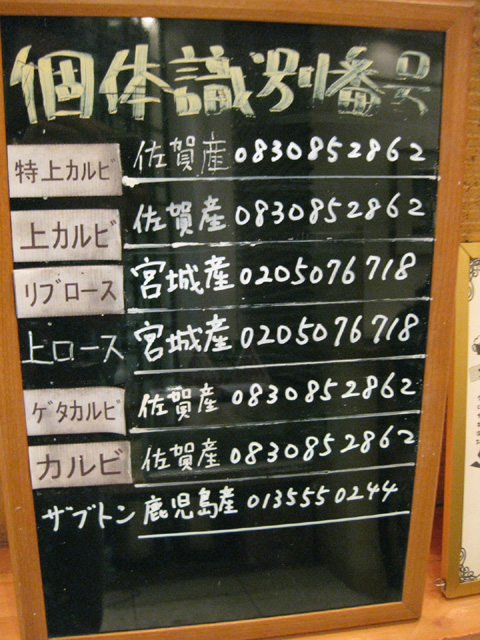 個体識別番号
特上カルビ 佐賀産 0830852862
上カルビ 佐賀産 0830852862
リブロース 宮城産 0205076718
上ロース 宮城産 0205076718
ゲタカルビ 佐賀産 0830852862
カルビ 佐賀産 0830852862
ザブトン 鹿児島産 0135550244